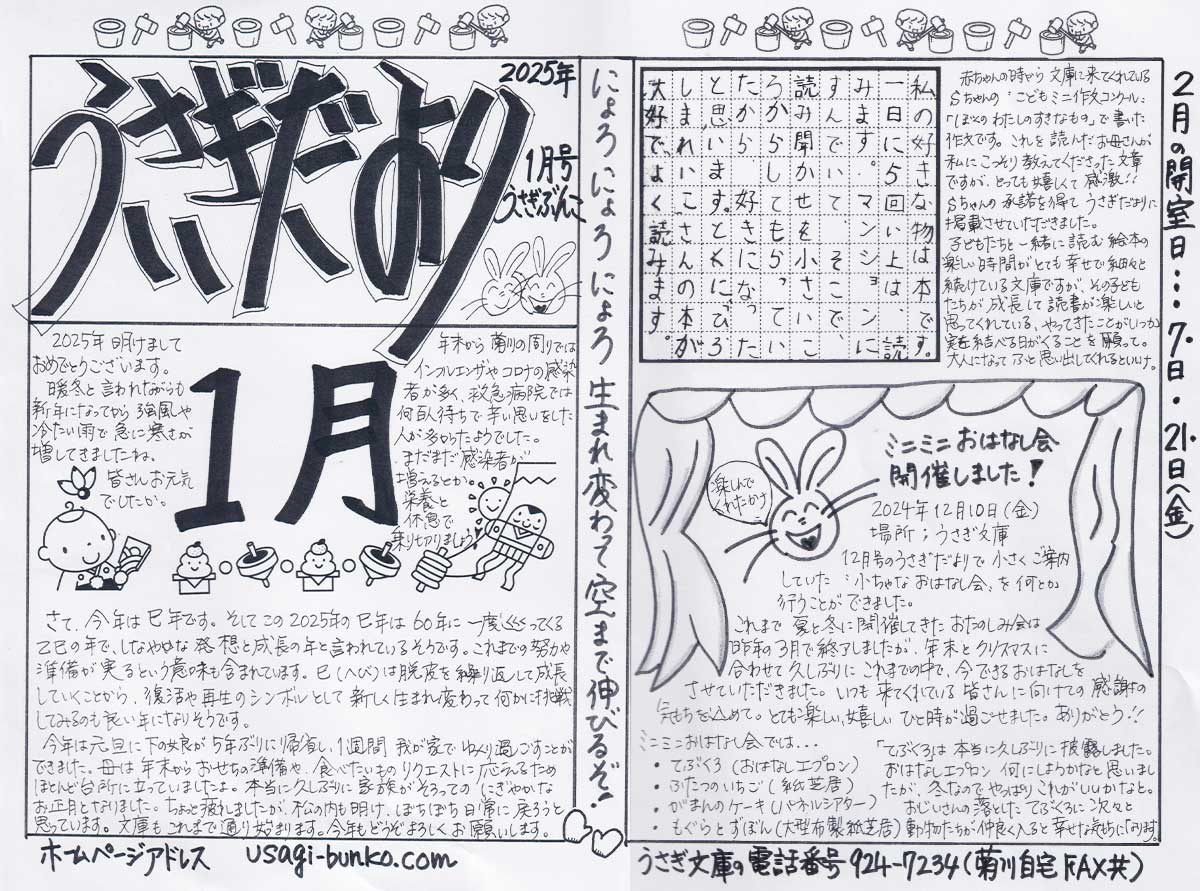 うさぎだより
2025年
1月号
うさぎぶんこ
1月
2025年 明けまして
おめでとうございます。
暖冬と言われながらも
新年になってから強風や
冷たい雨で急に寒さが
増してきましたね。
皆さんお元気
でしたか。
年末から菊川の周りでは
インフルエンザやコロナの感染
者が多く、救急病院では
何百人待ちで辛い思いをした
人が多かったようでした。
まだまだ感染者が
増えるとか。
栄養と
休息で
乗り切りましょう
さて、今年は巳年です。そしてこの2025年の巳年は60年に一度巡ってくる
乙巳の年で、しなやかな発想と成長の年と言われているそうです。これまでの努力や
準備が実るという意味も含まれています。巳(へび)は脱皮を繰り返して成長
していくことから、復活や再生のシンボルとして新しく生まれ変わって何かに挑戦
してみるのも良い年になりそうです。
今年は元旦に下の娘が5年ぶりに帰省し、1週間 我が家でゆっくり過ごすことが
できました。母は年末からおせちの準備や、食べたいものリクエストに応えるため
ほとんど台所に立っていましたよ。本当に久しぶりに家族がそろっての にぎやかな
お正月となりました。ちょっと疲れましたが、松の内も明け、ぼちぼち日常に戻ろうと
思っています。文庫もこれまで通り始まります。今年もどうぞよろしくお願いします。
ホームページアドレス usagi-bunko.com
にょろにょろにょろ 生まれ変わって空まで伸びるぞ!
私の好きな物は本です。
一日に5回い上は、読
みます。マンションに
すんでいて、そこで、
読み聞かせを小さいこ
ろからしてもらってい
たから好きになった
と思います。とくにひろ
しまれいこさんの本が
大好で、よく読みます。
赤ちゃんの時から文庫に来てくれている
Sちゃんの“こどもミニ作文コンクール”
「ぼくのわたしのすきなもの」で書いた
作文です。これを読んだお母さんが
私にこっそり教えてくださった文章
ですが、とっても嬉しくて感激!!
Sちゃんの承諾を得て うさぎだよりに
掲載させていただきました。
子どもたちと一緒に読む絵本の
楽しい時間がとても幸せで細々と
続けている文庫ですが、その子ども
たちが成長して読書が楽しいと
思ってくれている、やってきたことがいつか
実を結べる日がくることを願って。
大人になってふと思い出してくれるといいけ。
2月の開室日・・・7日・21日(金)
楽しんで
くれたかナ
ミニミニおはなし会
開催しました!
2024年12月10日(金)
場所;うさぎ文庫
12月号のうさぎだよりで小さくご案内
していた“小ちゃなおはなし会”を何とか
行うことができました。
これまで夏と冬に開催してきたおたのしみ会は
昨年の3月で終了しましたが、年末とクリスマスに
合わせて久しぶりにこれまでの中で、今できるおはなしを
させていただきました。いつも来てくれている皆さんに向けての感謝の
気もちを込めて。とても楽しい、嬉しいひと時が過ごせました。ありがとう!!
ミニミニおはなし会では…
・てぶくろ(おはなしエプロン)
・ふたつのいちご(紙芝居)
・がまんのケーキ(パネルシアター)
・もぐらとずぼん(大型布製紙芝居)
「てぶくろ」は本当に久しぶりに披露しました。
おはなしエプロン 何にしようかなと思いまし
たが、冬なのでやっぱりこれがいいかなと。
おじいさんの落とした てぶくろに次々と
動物たちが仲良く入ると幸せな気もちになります。
うさぎ文庫の電話番号 924-7234(菊川自宅FAX共)